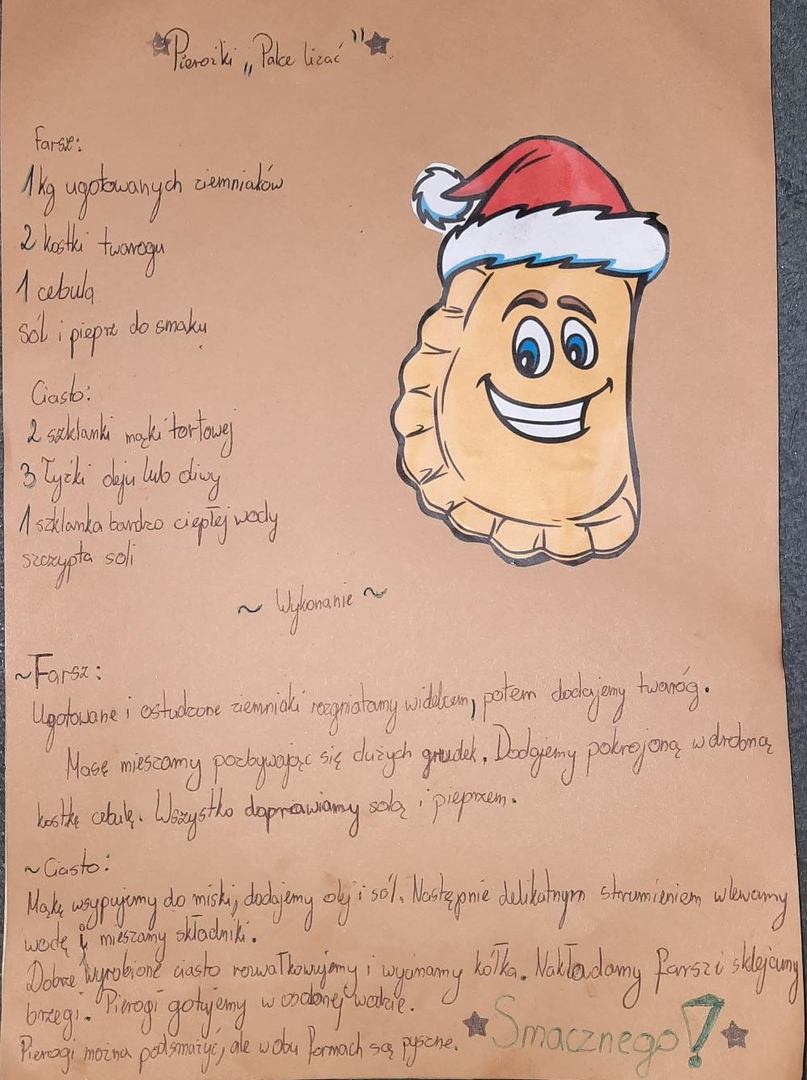 Pierożki „Palce lizać"
Farsz:
1 kg ugotowanych ziemniaków
2 kostki twarogu
1 cebula
sól i pieprz do smaku
Ciasto:
2 szklanki mąki tortowej
3 łyżki oleju lub oliwy
1 szklanka bardzo ciepłej wody
szczypta soli
~ Wykonanie ~
~Farsz:
Ugotowane i ostudzone ziemniaki rozgniatamy widelcem, potem dodajemy twaróg.
Masę mieszamy pozbywając się dużych grudek. Dodajemy pokrojoną w drobną
kostkę cebulę. Wszystko doprawiamy solą i pieprzem.
~Ciasto:
Mąkę wsypujemy do miski, dodajemy olej i sól. Następnie delikatnym strumieniem wlewamy
wodę i mieszamy składniki.
Dobrze wyrobione ciasto rozwałkowujemy i wycinamy kółka. Nakładamy farsz i sklejamy
brzegi. Pierogi gotujemy w osolonej wodzie.
Pierogi można podsmażyć, ale w obu formach są pyszne.
Smacznego!